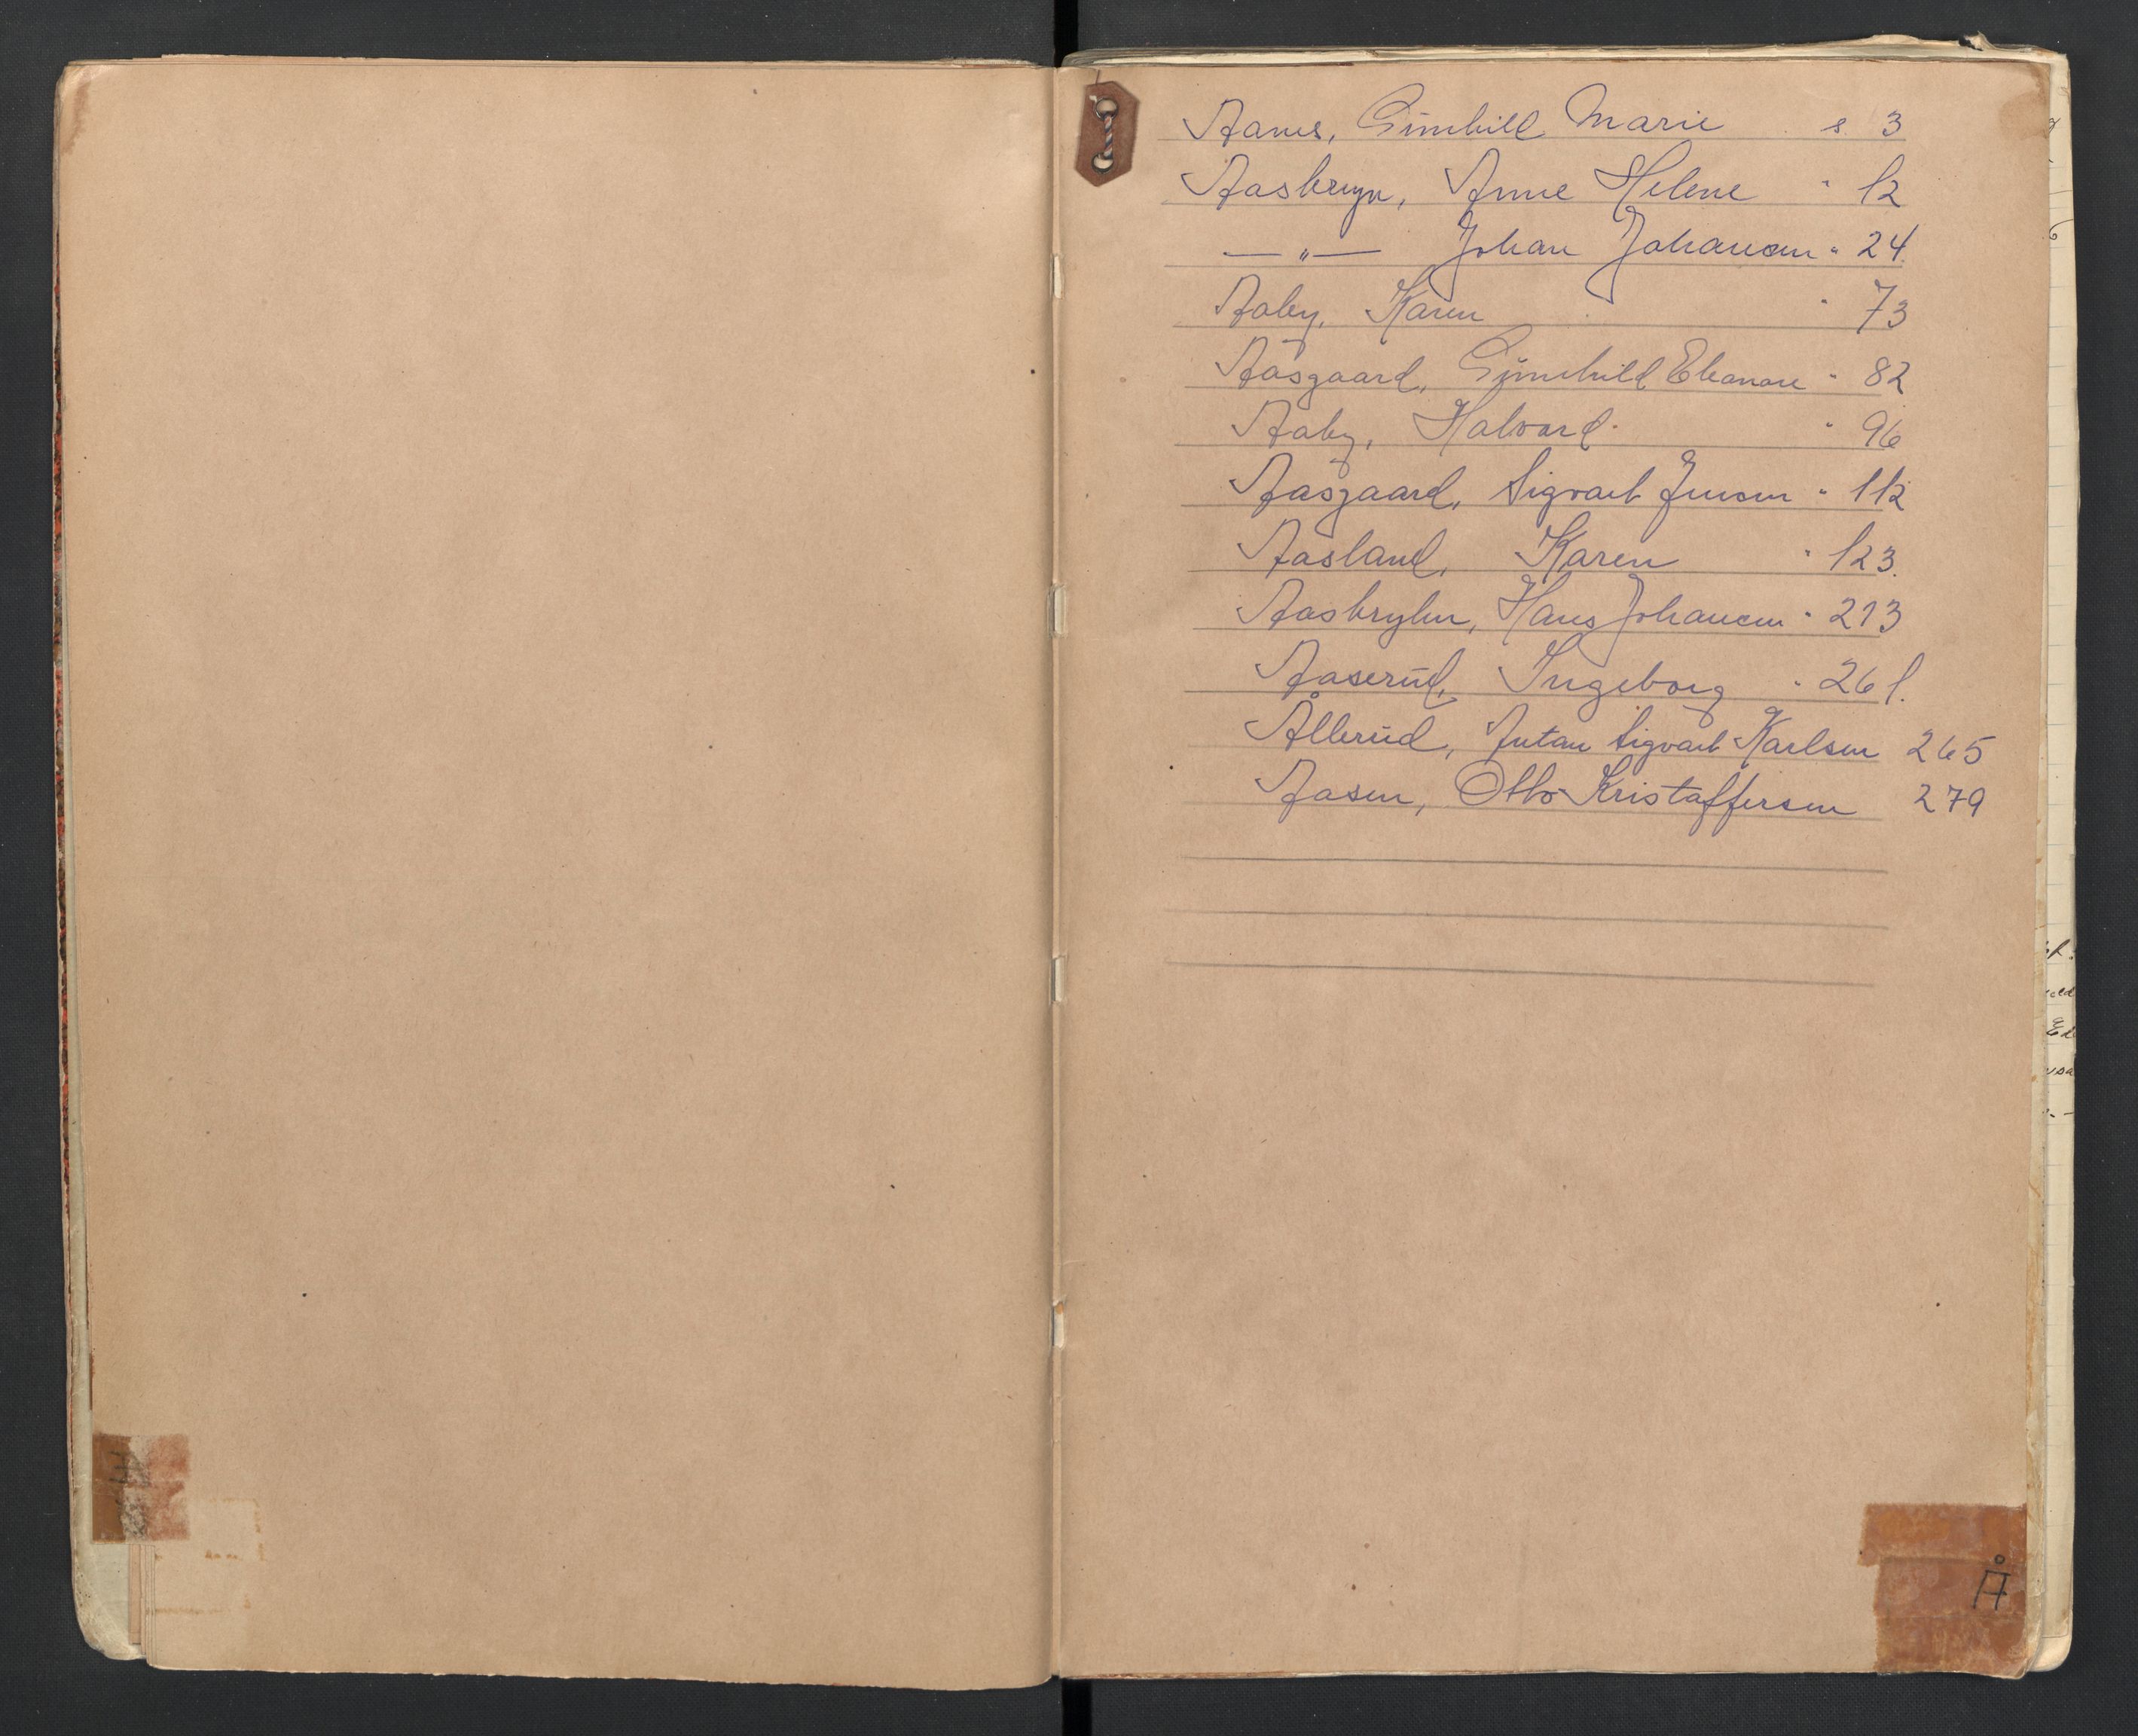 Aanes, Gunhild Marie s. 3
Aasbryn, Anne Helene " 12
— " — Johan Johansen " 24.
Aaby, Karen " 73
Aasgaard, Gunhild Eleonore " 82
Aaby, Halvard. " 96
Aasgaard, Sigvart Jensen " 112
Aasland, Karen " 123.
Aasbryhn, Hans Johansen " 213
Aaserud, Ingeborg " 261.
Ållerud, Antan Sigvart Karlsen 265
Aasen, Otto Kristoffersen 279
Å